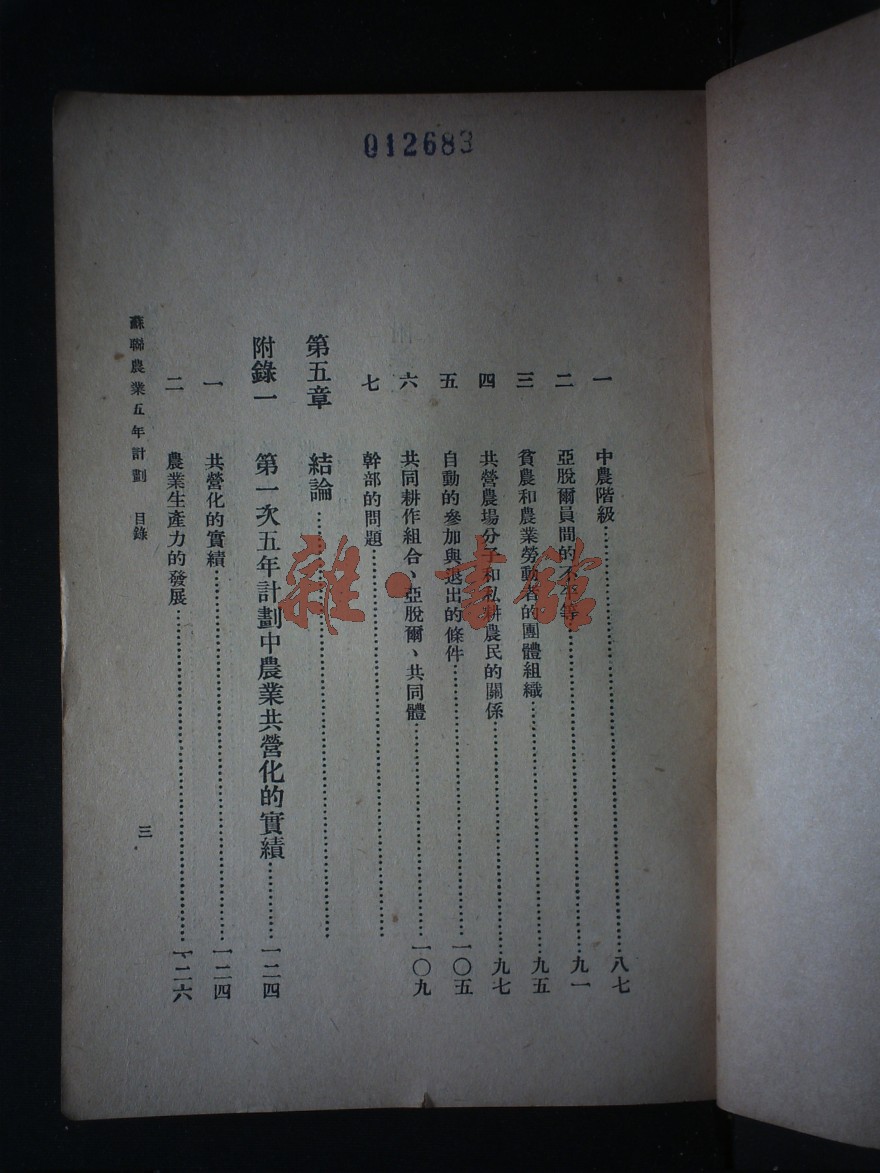 012683
一 中農階級……八七
二 亞脫爾員間的不平等……九一
三 貧農和農業勞動者的團體組織……九五
四 共營農場分子和私耕農民的關係……九七
五 自動的參加與退出的條件……一〇五
六 共同耕作組合、亞脫爾、共同體……一〇九
七 幹部的問題……
第五章 結論……
附錄一 第一次五年計劃中農業共營化的實績……一二四
一 共營化的實績……一二四
二 農業生產力的發展……一二六
蘇聯農業五年計劃 目錄 三
雜·書館